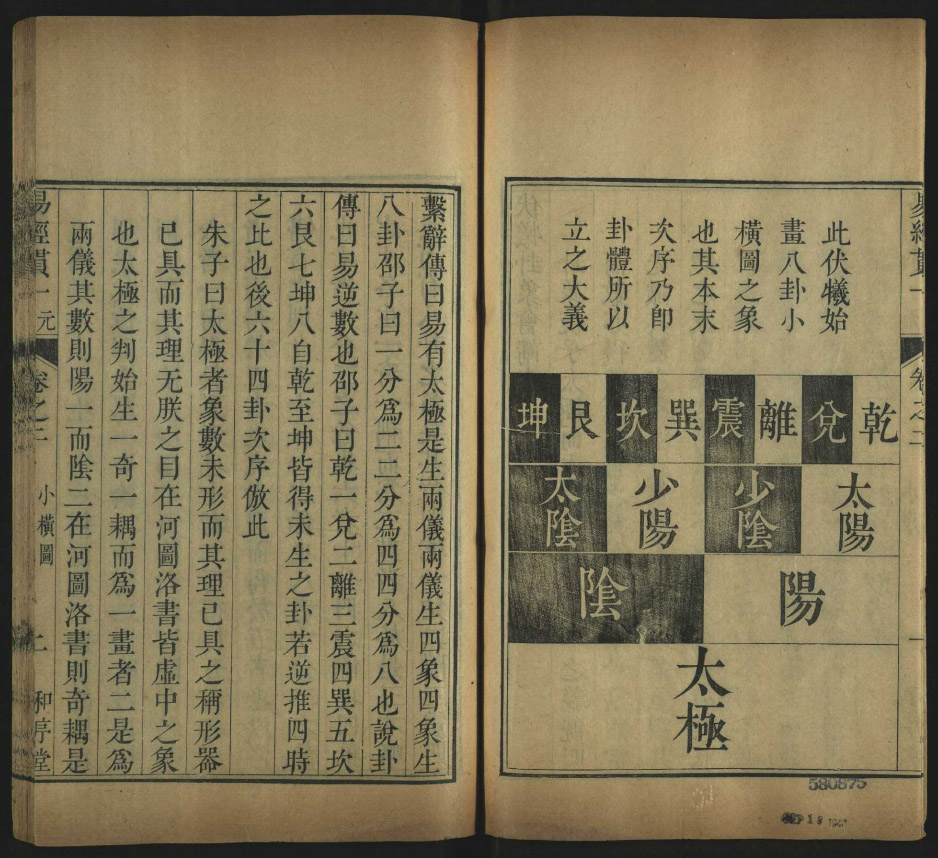 此伏犧始
畫八卦小
橫圖之象
也其本末
次序乃即
卦體所以
立之大義
乾
兌
離
震
巽
坎
艮
坤
太陽
少陰
少陽
太陰
陽
陰
太極
580875
繫辭傳曰易有太極是生兩儀兩儀生四象四象生
八卦邵子曰一分爲二二分爲四四分爲八也說卦
傳曰易逆數也邵子曰乾一兌二離三震四巽五坎
六艮七坤八自乾至坤皆得未生之卦若逆推四時
之比也後六十四卦次序倣此
朱子曰太極者象數未形而其理已具之稱形器
已具而其理无朕之目在河圖洛書皆虛中之象
也太極之判始生一奇一耦而爲一畫者二是爲
兩儀其數則陽一而陰二在河圖洛書則奇耦是
易經貫一 元 卷之二 小橫圖 二 和序堂